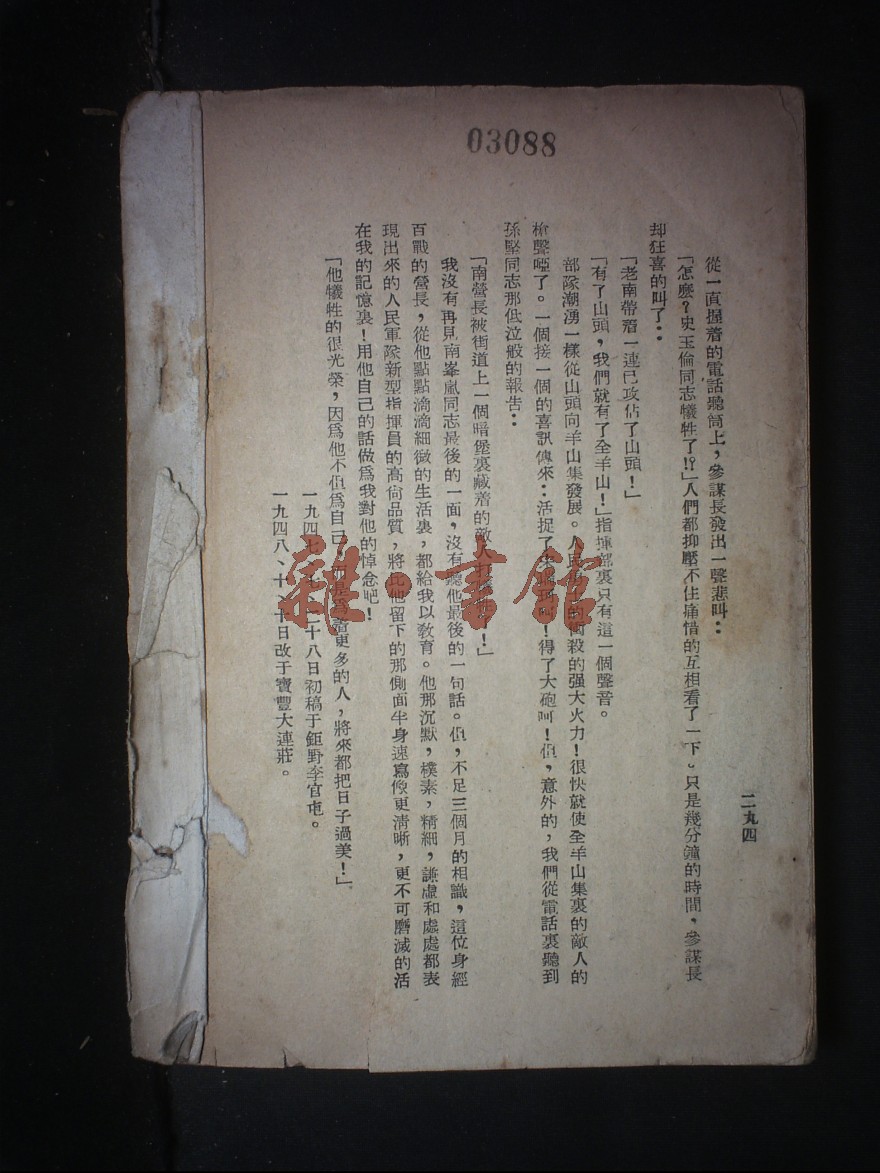 03088
二九四
從一直握着的電話聽筒上，參謀長發出一聲悲叫：
「怎麽？史玉倫同志犧牲了!?」人們都抑壓不住痛惜的互相看了一下。只是幾分鐘的時間，參謀長
却狂喜的叫了：
「老南帶着一連已攻佔了山頭！」
「有了山頭，我們就有了全羊山！」指揮部裏只有這一個聲音。
部隊潮湧一樣從山頭向羊山集發展。人民的衝殺的强大火力！很快就使全羊山集裏的敵人的
槍聲啞了。一個接一個的喜訊傳來：活捉了！得了大砲呵！但，意外的，我們從電話裏聽到
孫堅同志那低泣般的報告：
「南營長被街道上一個暗堡裏藏着的敵人打！」
我沒有再見南峯嵐同志最後的一面，沒有聽他最後的一句話。但，不足三個月的相識，這位身經
百戰的營長，從他點點滴滴細微的生活裏，都給我以敎育。他那沉默，樸素，精細，謙虛和處處都表
現出來的人民軍隊新型指揮員的高尙品質，將比他留下的那側面半身速寫像更清晰，更不可磨滅的活
在我的記憶裏！用他自己的話做爲我對他的悼念吧！
「他犧牲的很光榮，因爲他不但爲自己，而是爲着更多的人，將來都把日子過美！」
一九四七、七、二十八日初稿于鉅野李官屯。
一九四八、十、十日改于寶豐大連莊。
雜·書館